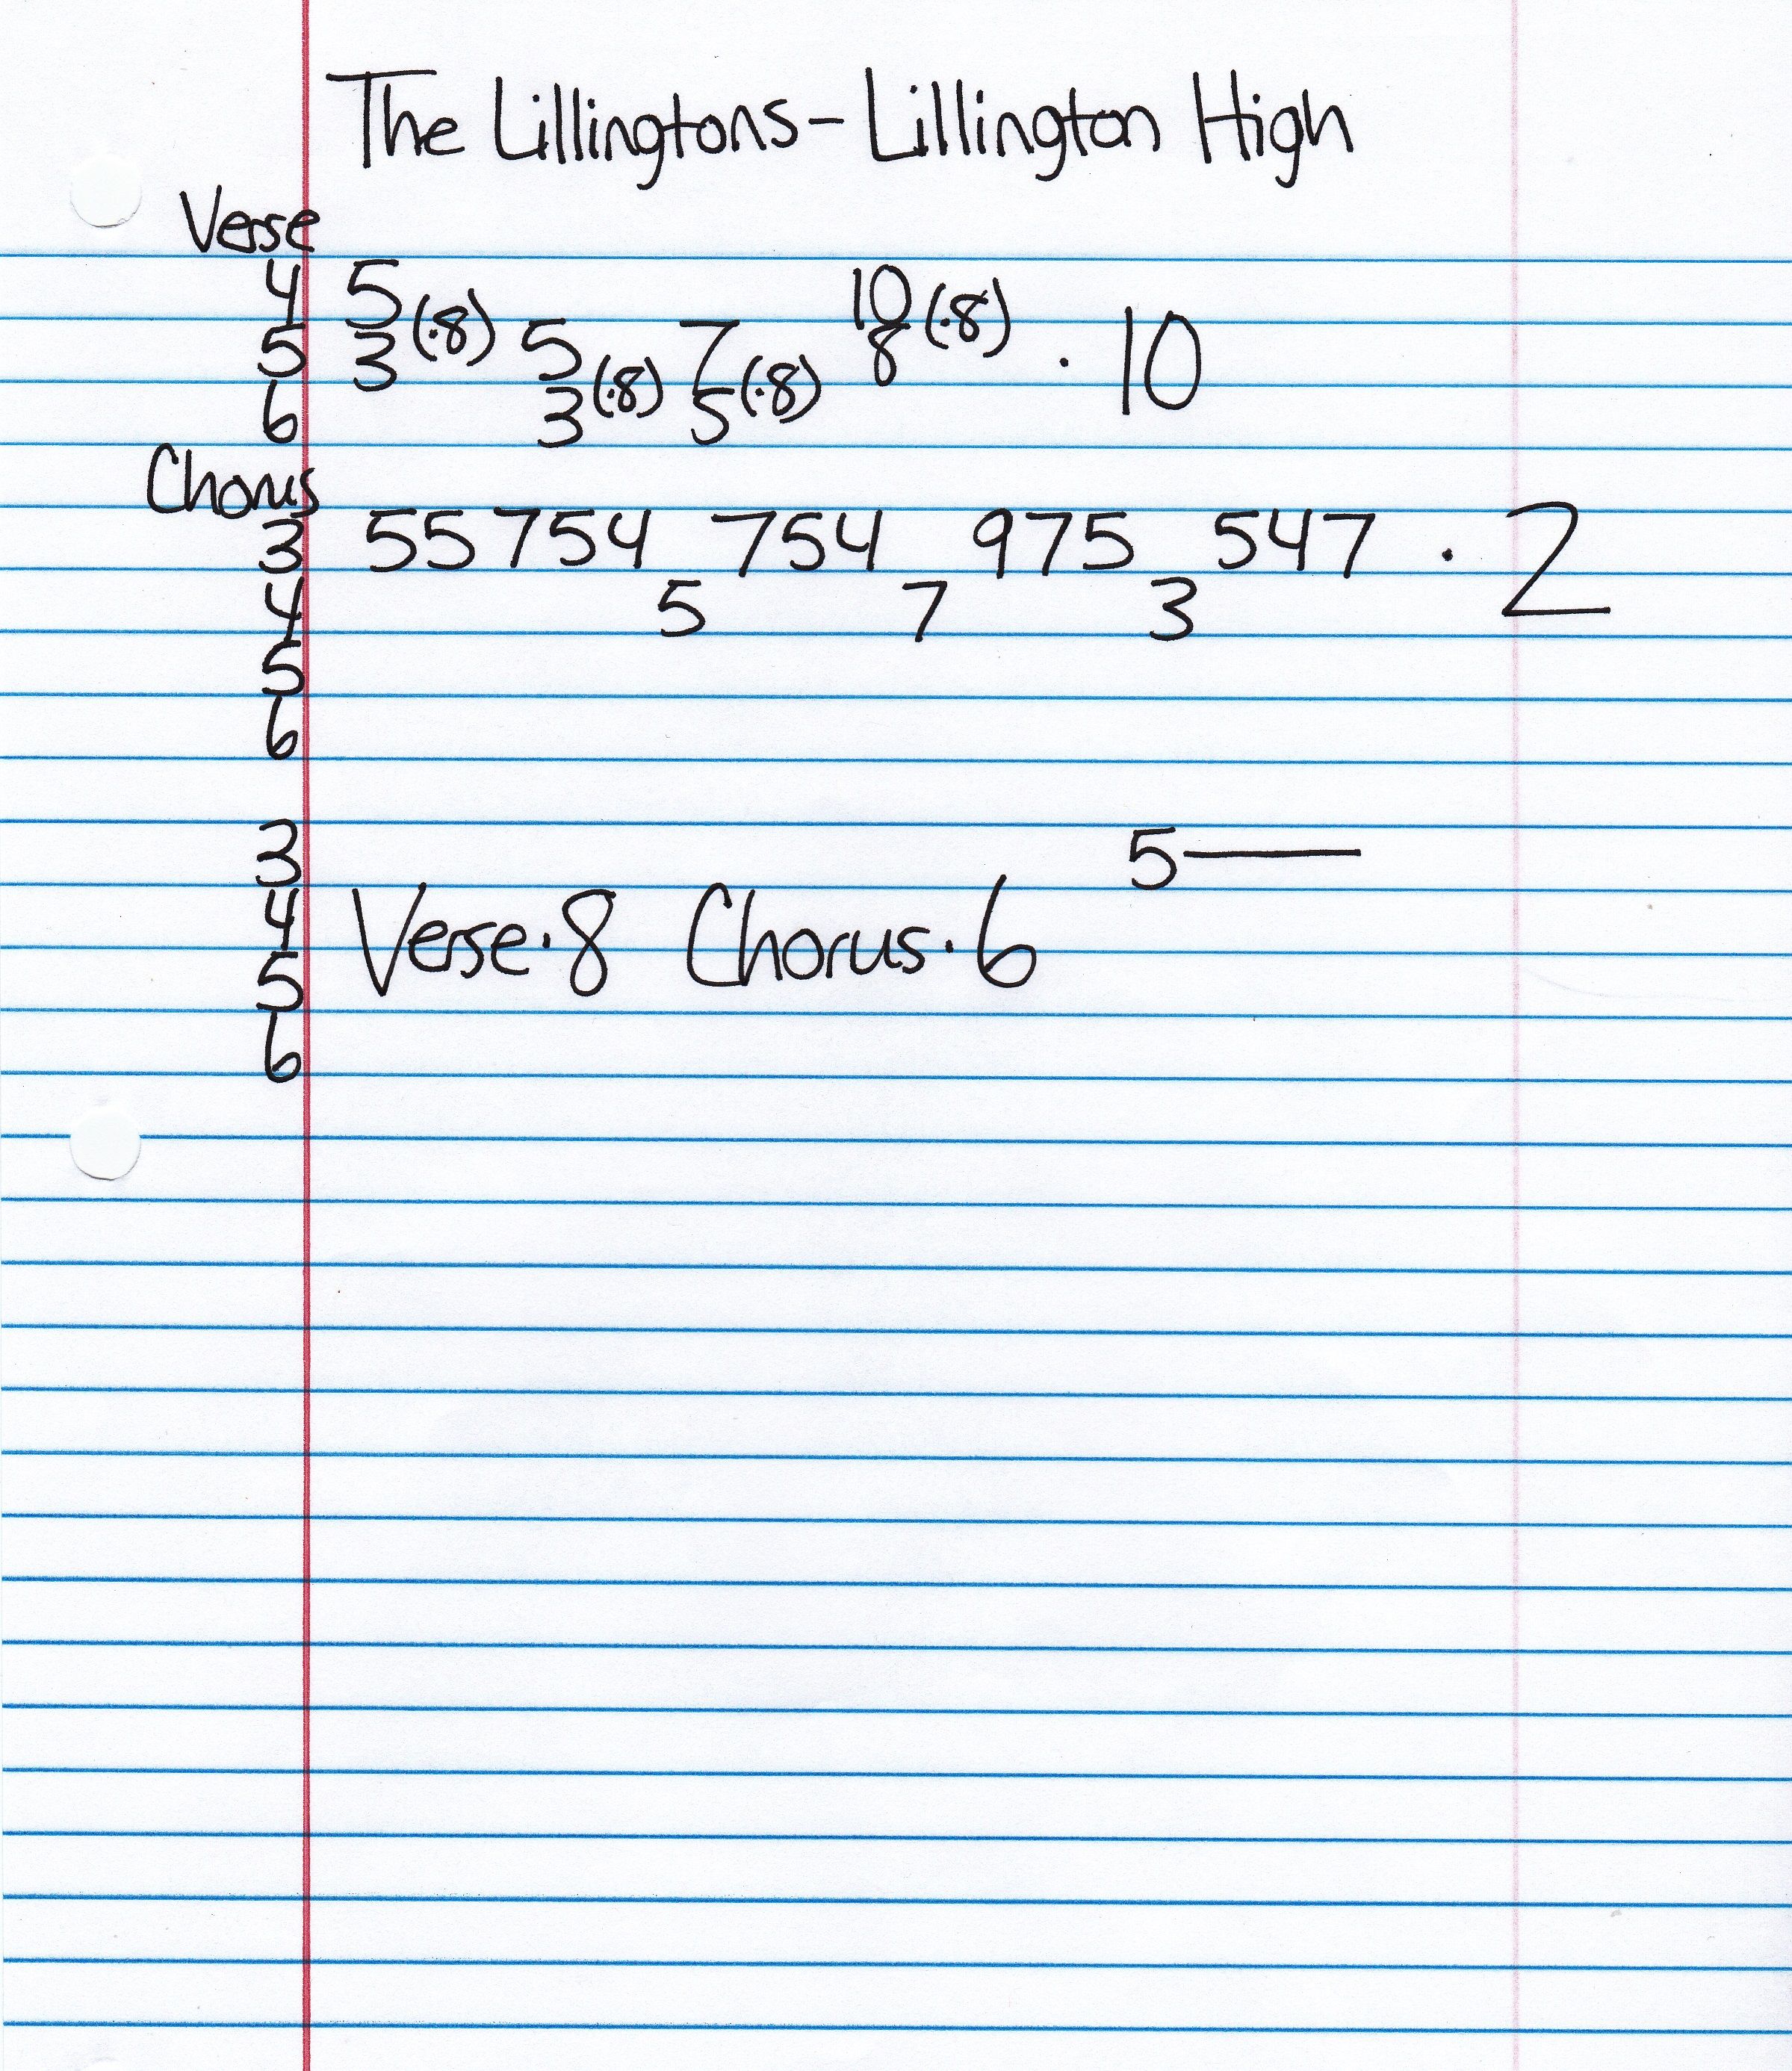 The Lillingtons - Lillington High
Verse
4 5 10
5 3 (·8) 5 7 8 (·8) · 10
6 3 (·8) 5 (·8)
Chorus
3 55 754 754 975 547 · 2
4 5 7 3
5
6
3 5—
4
5 Verse·8 Chorus·6
6